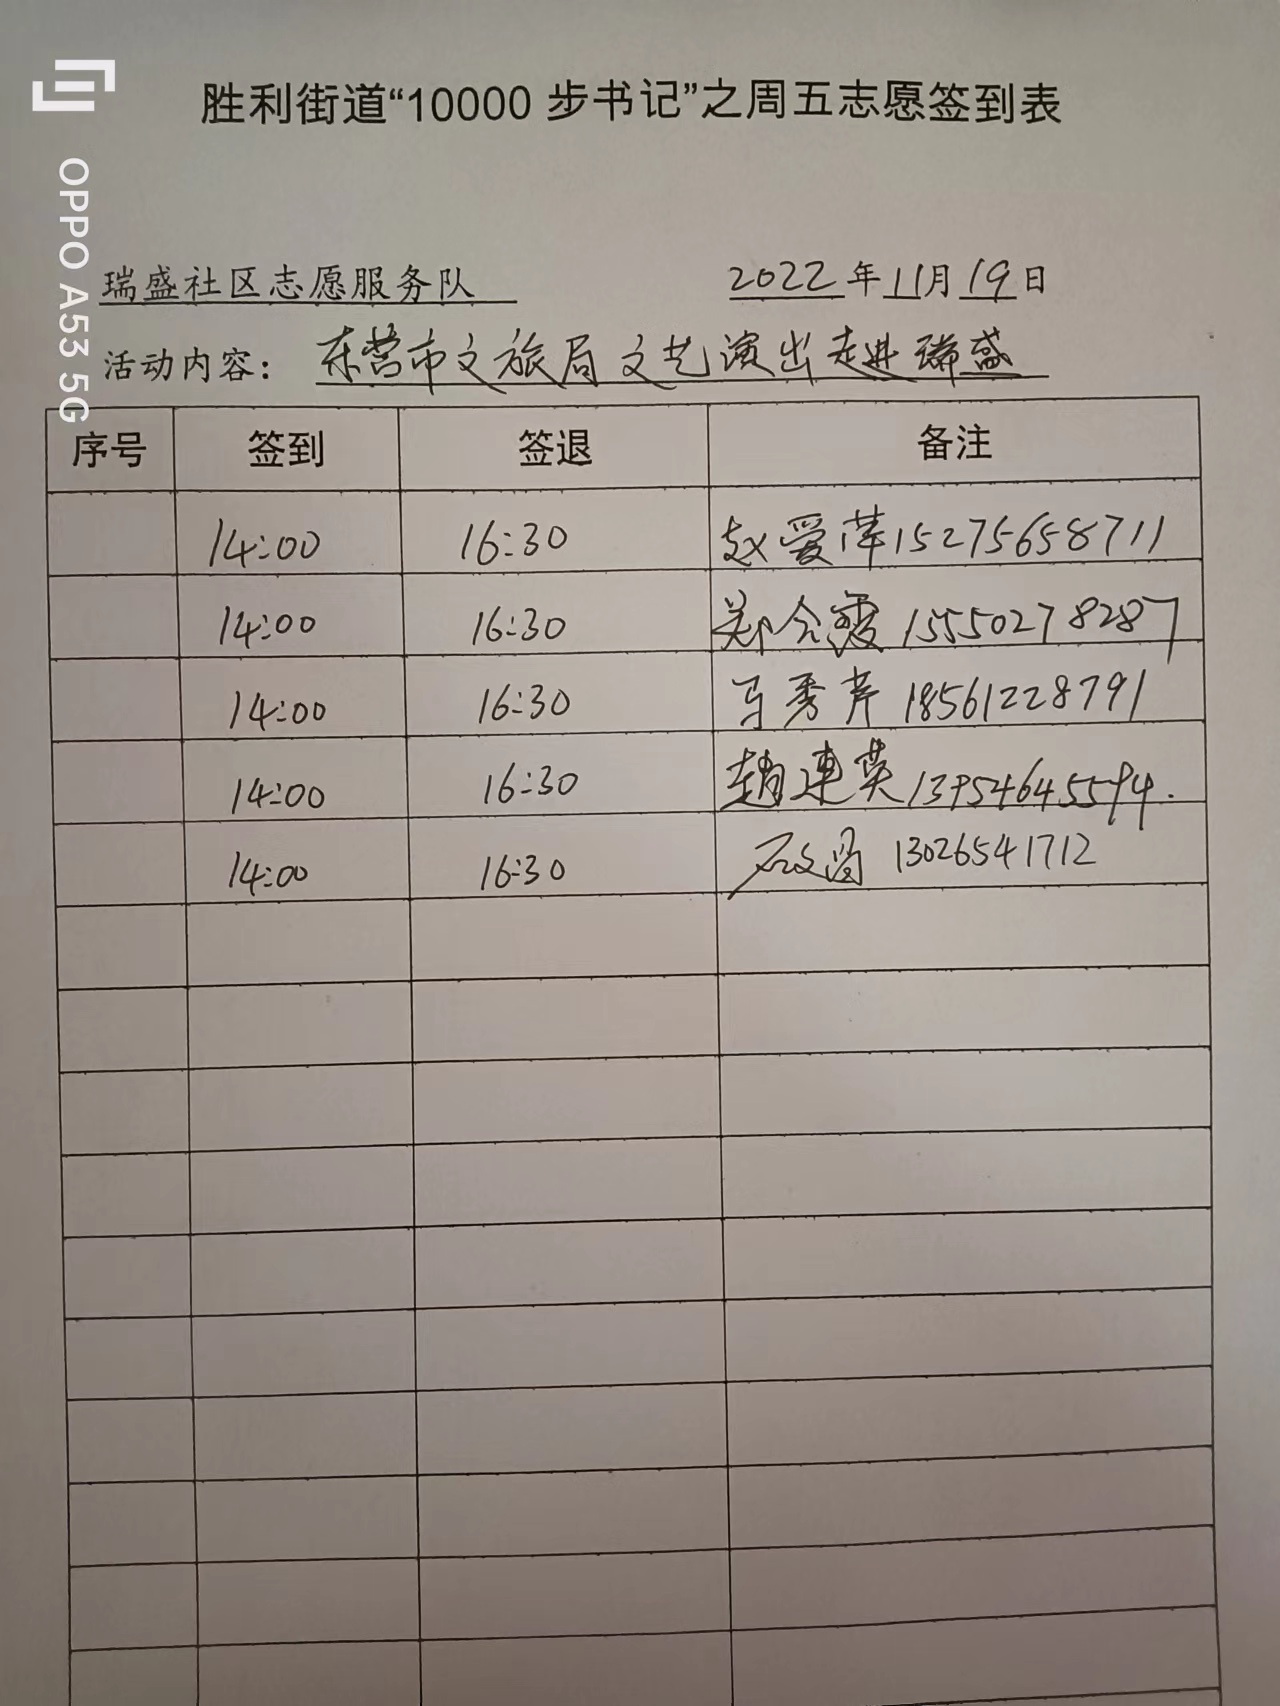 胜利街道“10000步书记”之周五志愿签到表
OPPO A53 5G
瑞盛社区志愿服务队 2022年11月19日
活动内容：东营市文旅局文艺演出走进瑞盛
序号 签到 签退 备注
14:00 16:30 赵爱萍15275658711
14:00 16:30 郑会霞 15550278287
14:00 16:30 马秀芹 18561228791
14:00 16:30 趙連英13954645594.
14:00 16:30 13026541712